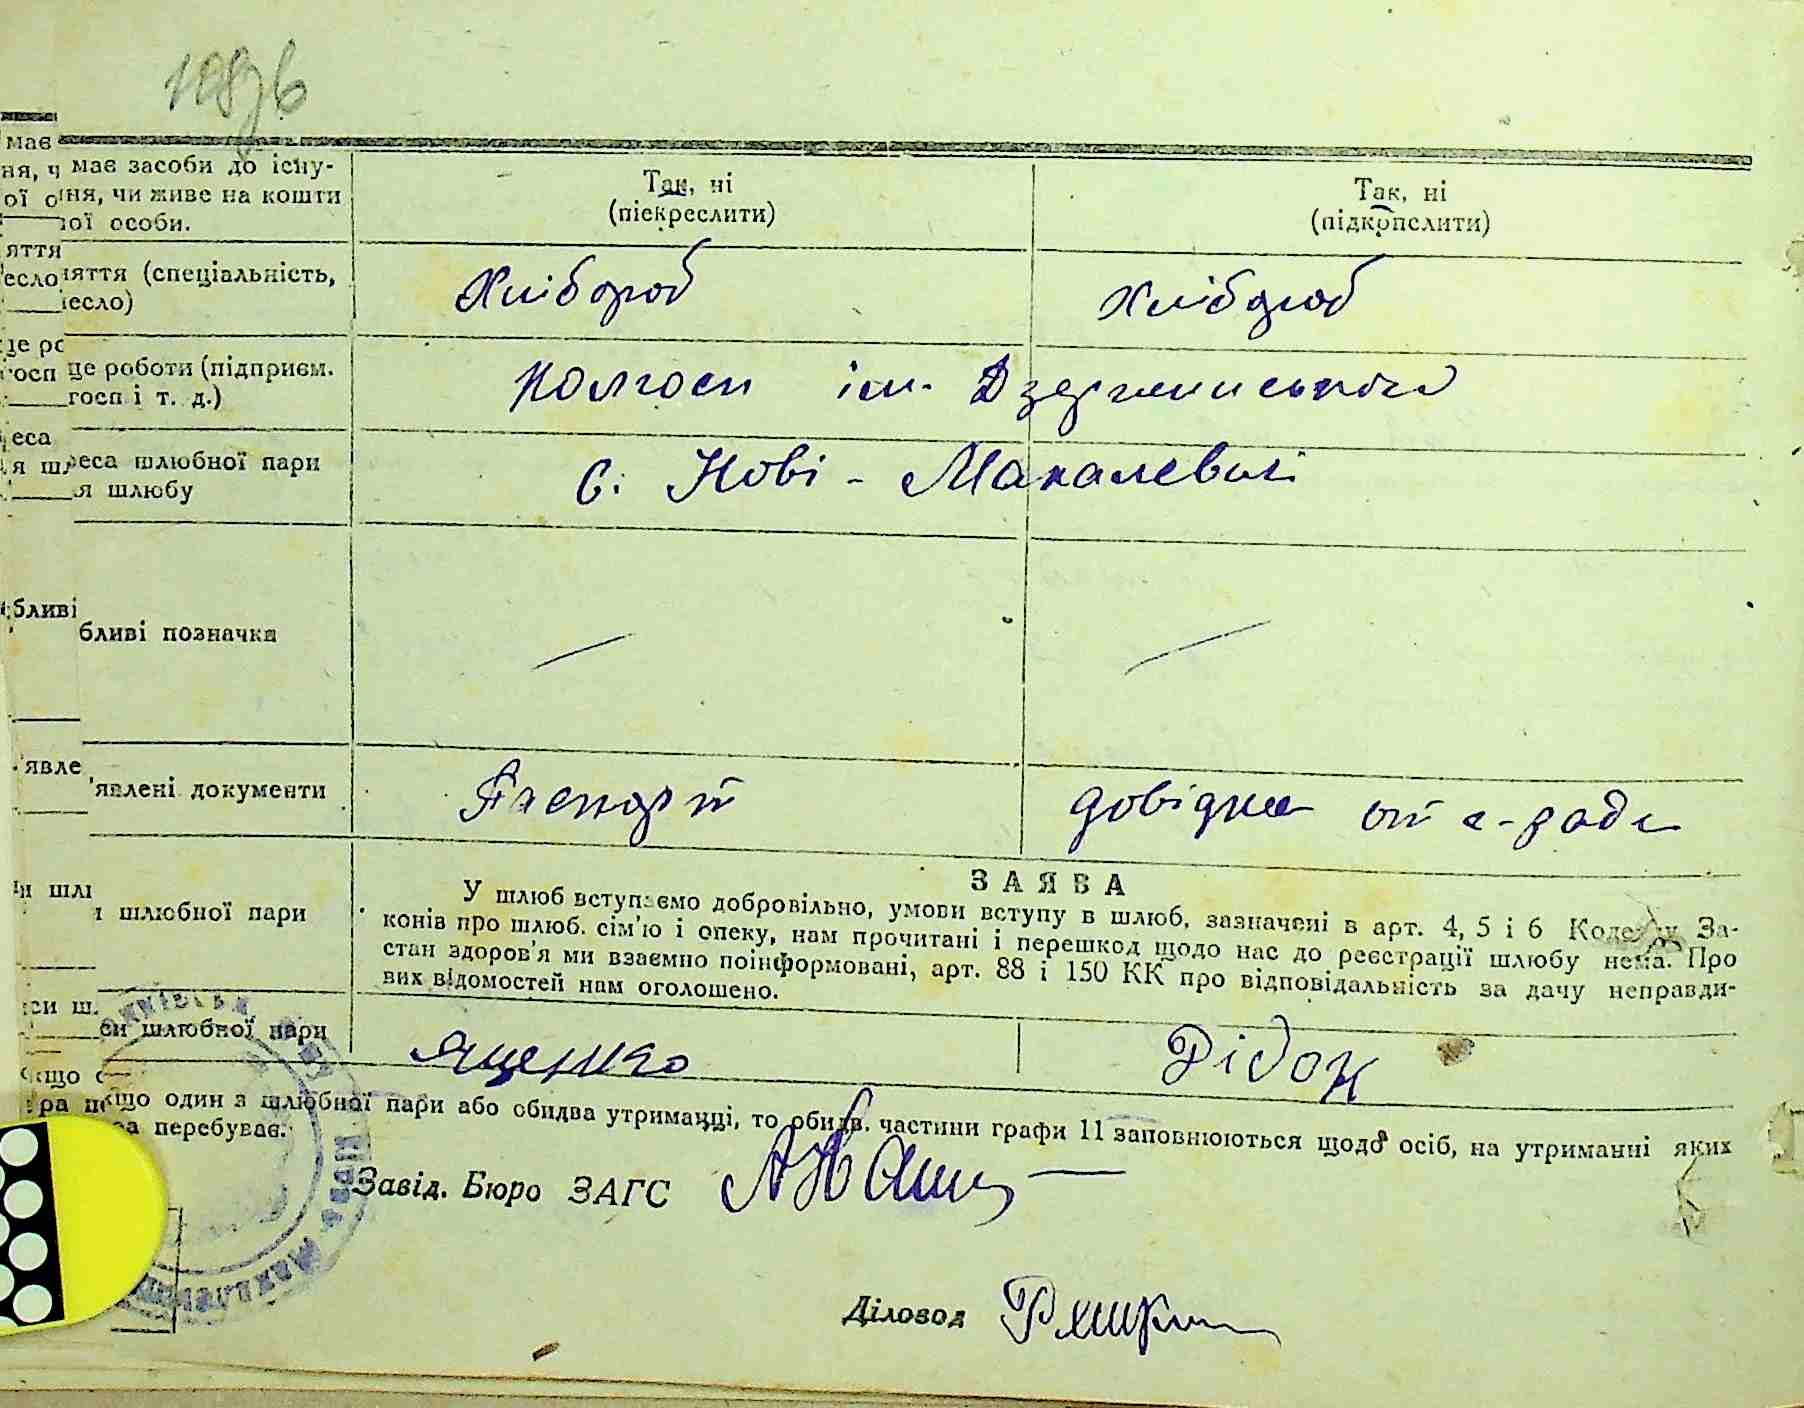 має засоби до існу-
ня, чи живе на кошти
ої особи.
Так, ні
(піекреслити)
Так, ні
(підкрпслити)
яття (спеціальність,
есло)
Хлібороб
Хлібороб
це роботи (підприєм.
госп і т. д.)
Колгосп ім. Дзержинського
еса шлюбної пари
я шлюбу
с. Нові - Макалевичі
бливі позначки
—
—
явлені документи
Паспорт
довідка от с-ради
шлюбної пари
ЗАЯВА
У шлюб вступаємо добровільно, умови вступу в шлюб, зазначені в арт. 4, 5 і 6 Кодексу За-
конів про шлюб. сім'ю і опеку, нам прочитані і перешкод щодо нас до реєстрації шлюбу нема. Про
стан здоров'я ми взаємно поінформовані, арт. 88 і 150 КК про відповідальність за дачу неправди-
вих відомостей нам оголошено.
си шлюбної пари
Ященко
Дідок
кщо один з шлюбної пари або обидва утриманці, то обидв. частини графи 11 заповнюються щодо осіб, на утриманні яких
ра перебуває.
Завід. Бюро ЗАГС
Діловод